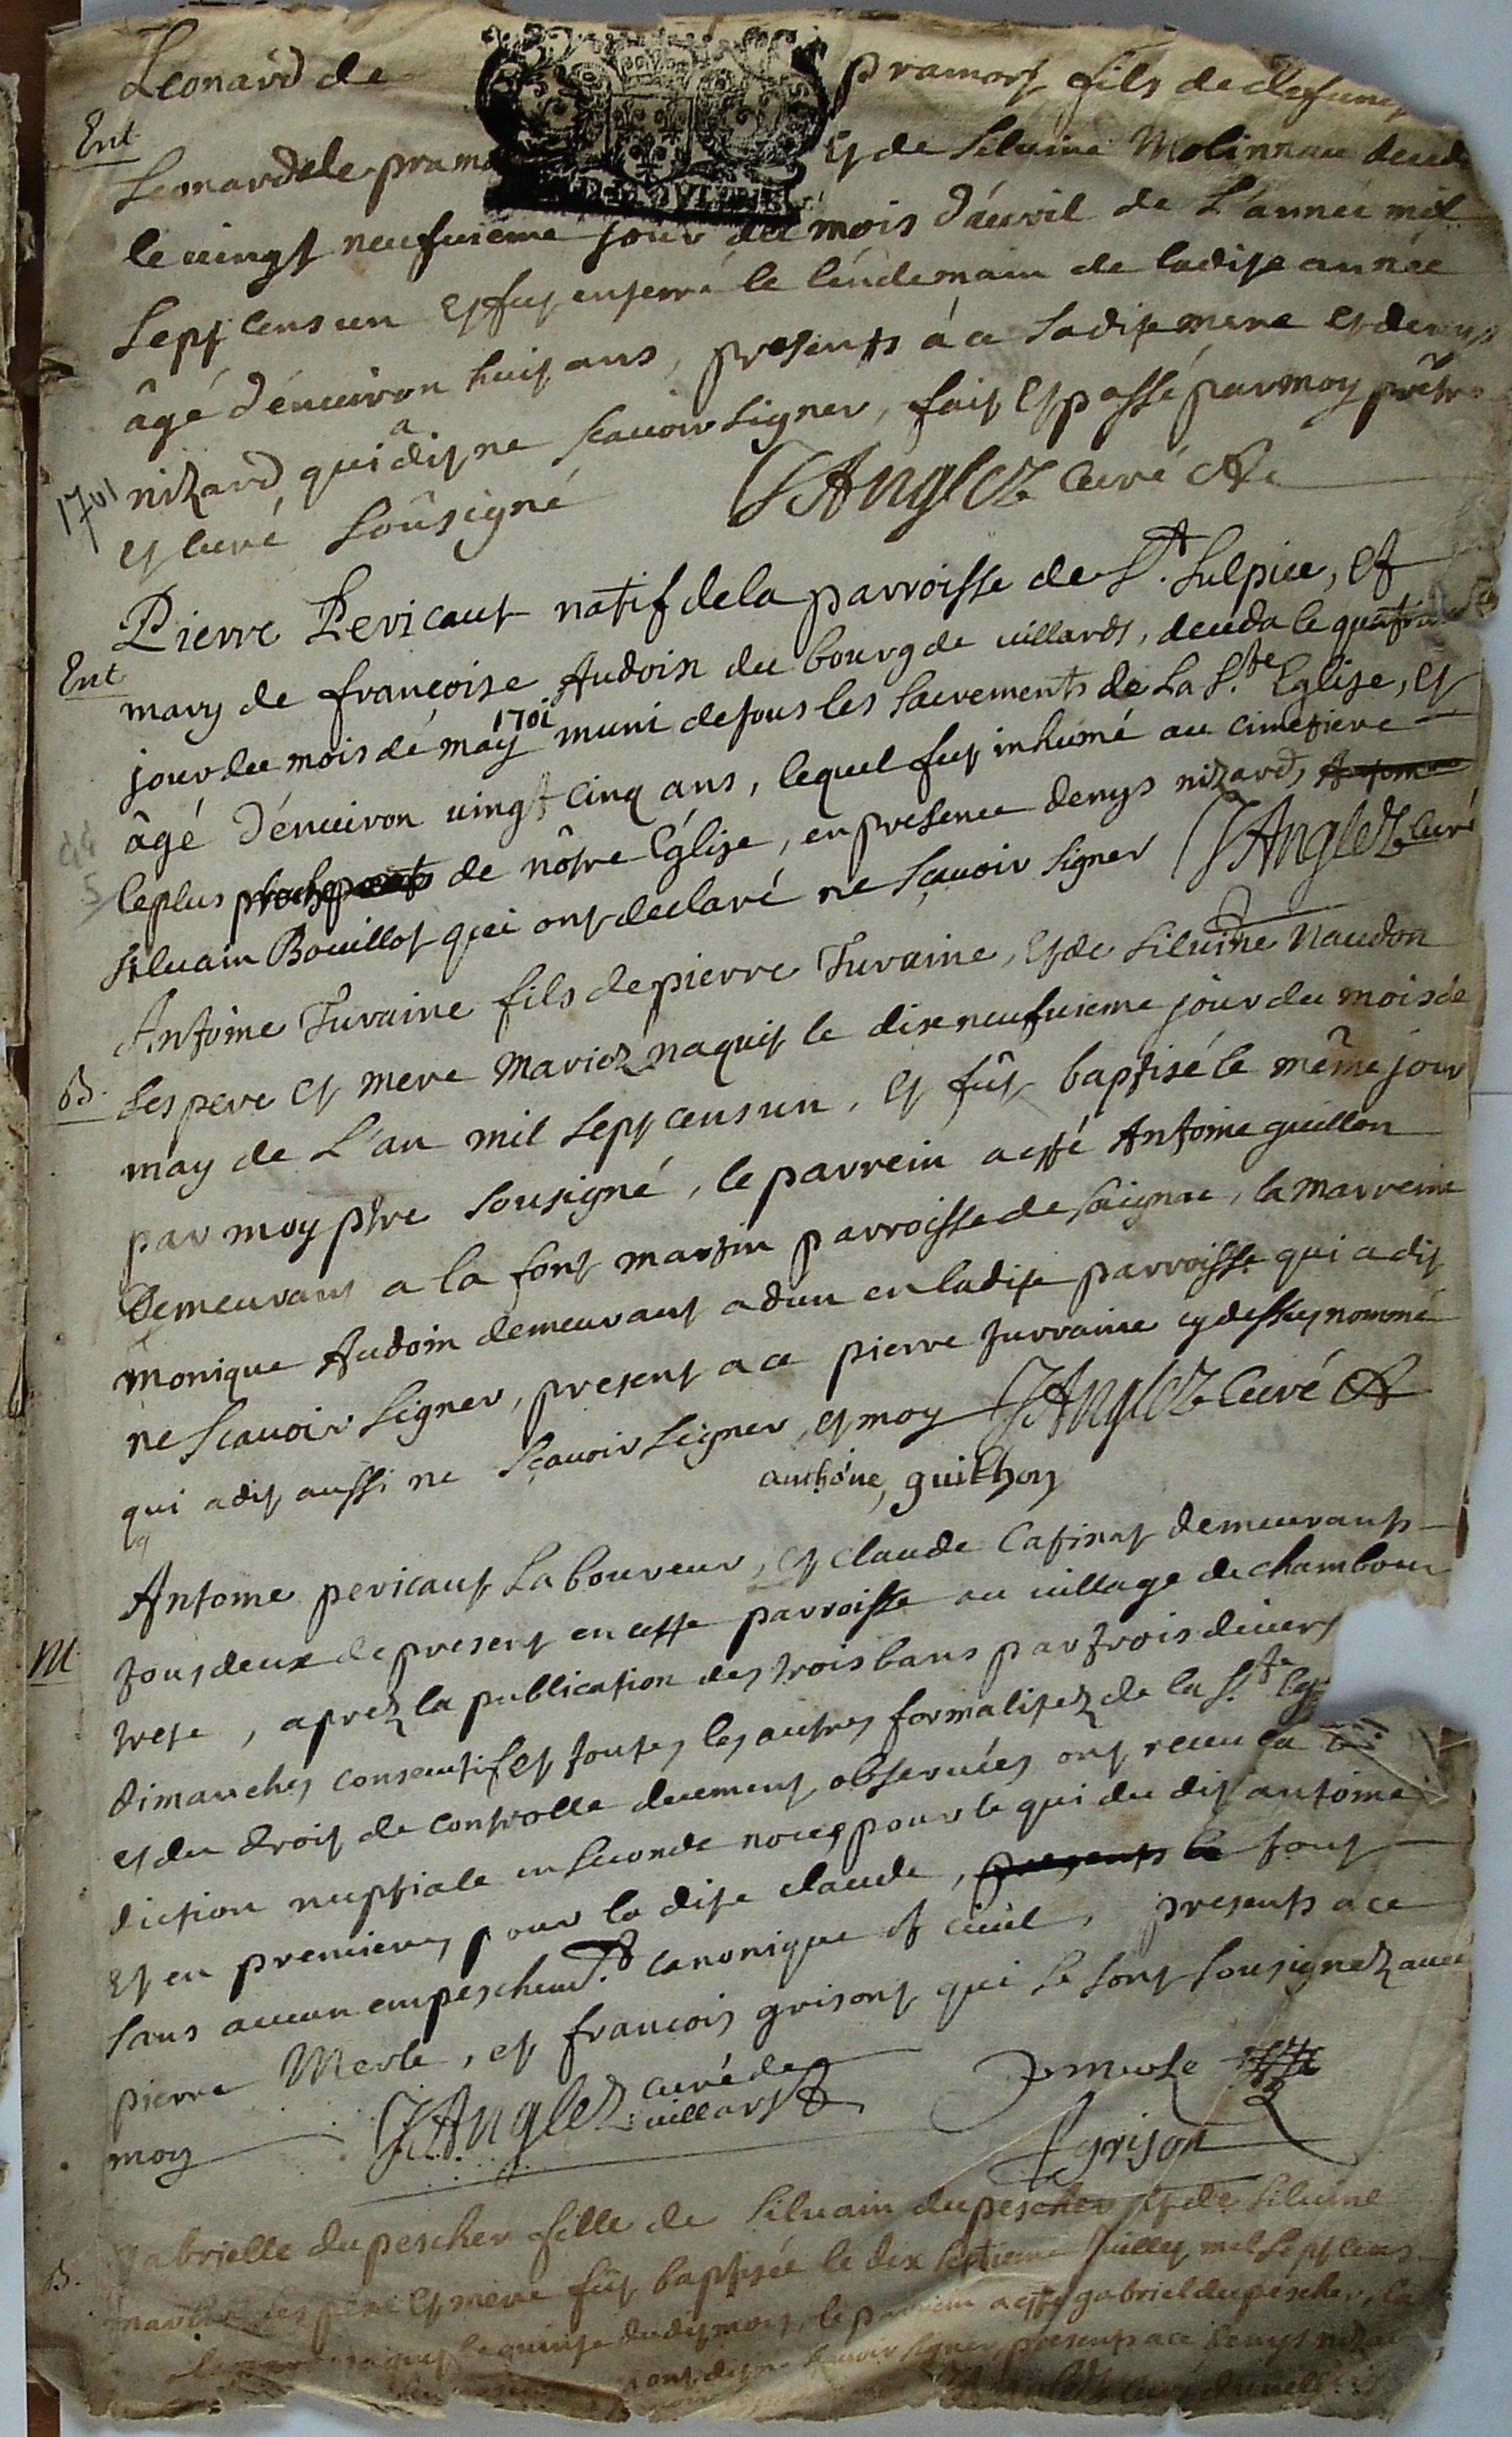 Leonard de pramort fils de defunct
Ent
Leonard de pramo et de Siluine Molinnau deceda
le uingt neufuieme jour du mois d'auvril de L'année mil
Sept cens un et fut enterré le lendemain de ladite année
âgé d'enuiron huit ans, presents à ce sadite mere et denys
nizard qui a dit ne scauoir signer, fait et passé par moy prêtre
1701
et curé Sousigné JAnglez curé
Pierre Pericaut natif de la parroisse de St. Sulpice, et
Ent
mary de françoise Audoin du bourg de uillards, deceda le quatrieme
jour du mois de may 1701 muni de tous les Sacrements de La Ste Eglise, et
âgé d'enuiron uingt cinq ans, lequel fut inhumé au cimetiere
le plus de nôtre Eglise, en presence denys nizard,
siluain Bouillot qui ont declaré ne sçauoir signer JAnglez curé
Antoine Turaine fils de pierre Turaine, et de siluine Naudon
B.
ses pere et mere mariez naquit le dixneufuieme jour du mois de
may de L'an mil sept cens un, et fût baptisé le même jour
par moy ptre sousigné, le parrein a esté Antoine guillon
Demeurant a la font martin parroisse de saignac, la marreine
monique Audoin demeurant a dun en ladite parroisse qui a dit
ne scauoir signer, present a ce pierre Turraine cy dessus nommé
qui a dit aussi ne sçauoir signer, et moy JAnglez curé
anthoine guilhon
Antoine pericaut Laboureur, et claude Catinat demeurants
M.
tous deux de present en cette parroisse au uillage de chambou
trete, aprez la publication des trois bans par trois diuers
dimanches consecutifs et toutes les autres formalitez de la Ste
et du droit de controlle deuement obseruées ont receu la
diction nuptiale en seconde noces pour le qui du dit antoine
et en premieres pour la dite claude, tout
sans aucun empeschemt. canonique et ciuil, presents a ce
pierre Merle, et francois grisont qui se sont sousignez auec
moy JAnglez curé de uillars
P merle
f grison
Gabrielle dupescher fille de Siluain dupescher et de Siluine
B.
ses pere et mere fût baptisée le dix septieme juillet mil sept cens
naquit le quinze dudit mois, le parrein a esté gabriel dupescher, la
ont dit ne scauoir signer, presents a ce denys nizard